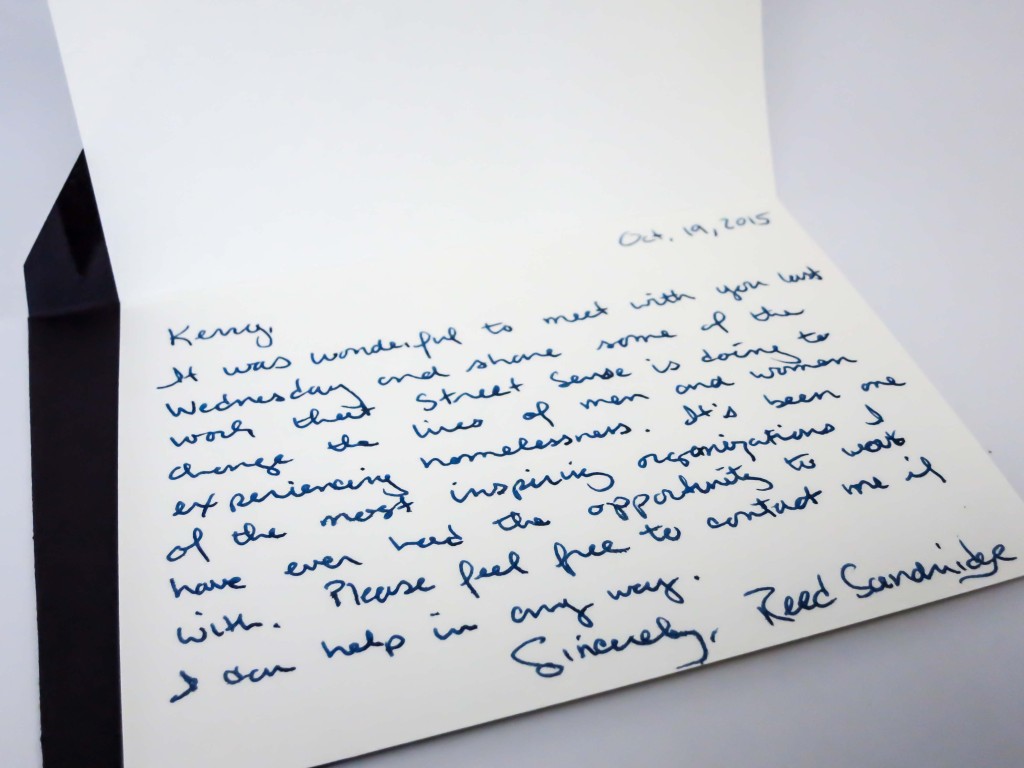 Oct. 19, 2015
Kerry,
It was wonderful to meet with you last
Wednesday and share some of the
work that Street Sense is doing to
change the lives of men and women
experiencing homelessness. It's been one
of the most inspiring organizations I
have ever had the opportunity to work
with. Please feel free to contact me if
I can help in any way.
Sincerely, Reed Sandridge